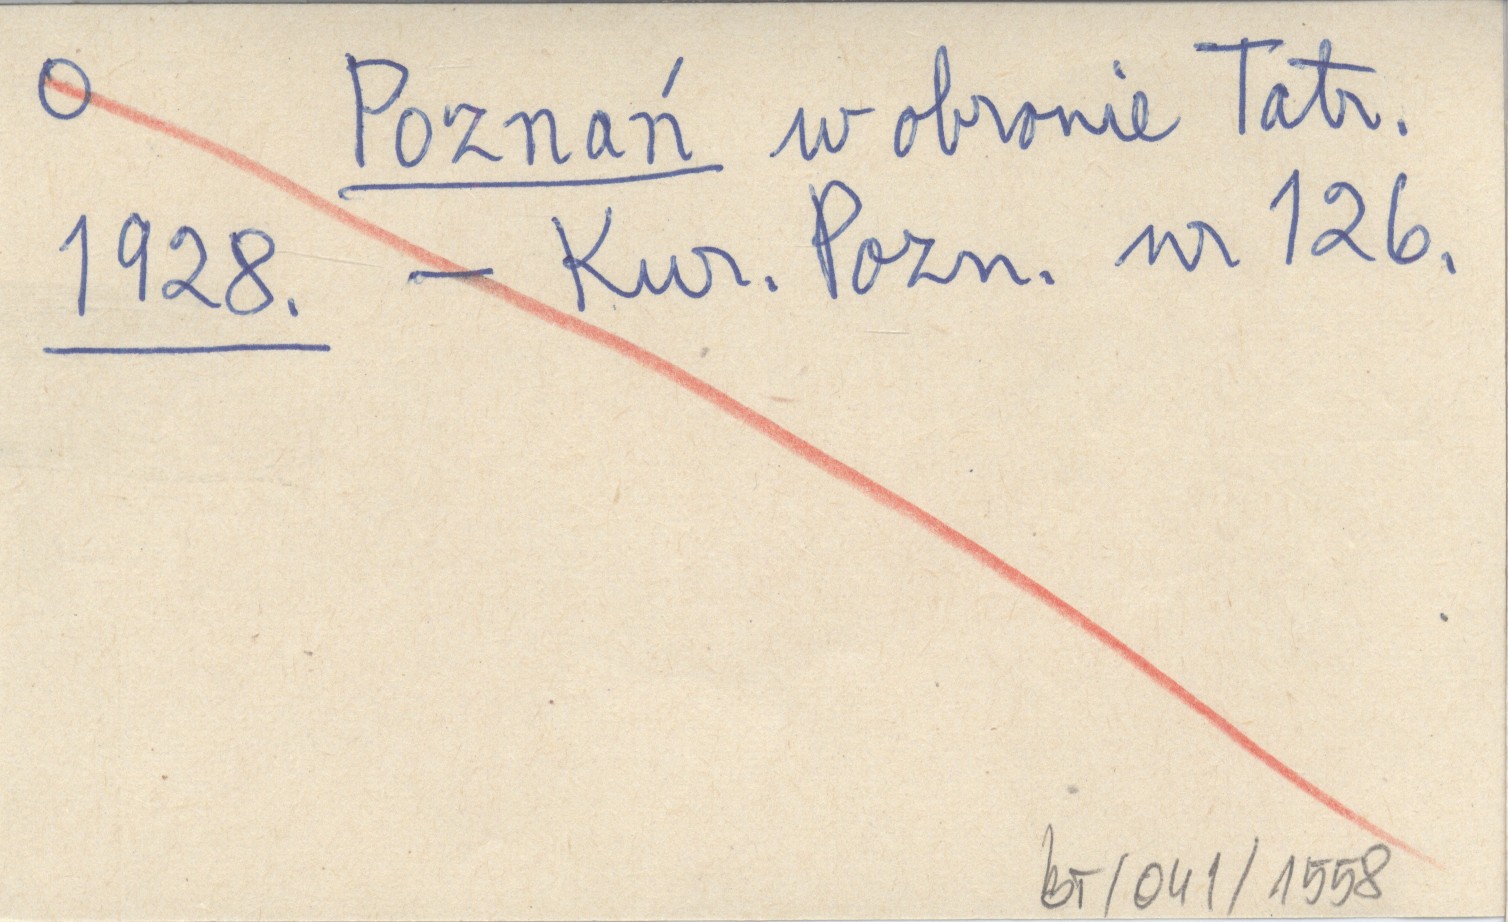 O Poznań w obronie Tatr.
1928. — Kur. Pozn. nr 126.
BT/041/1558